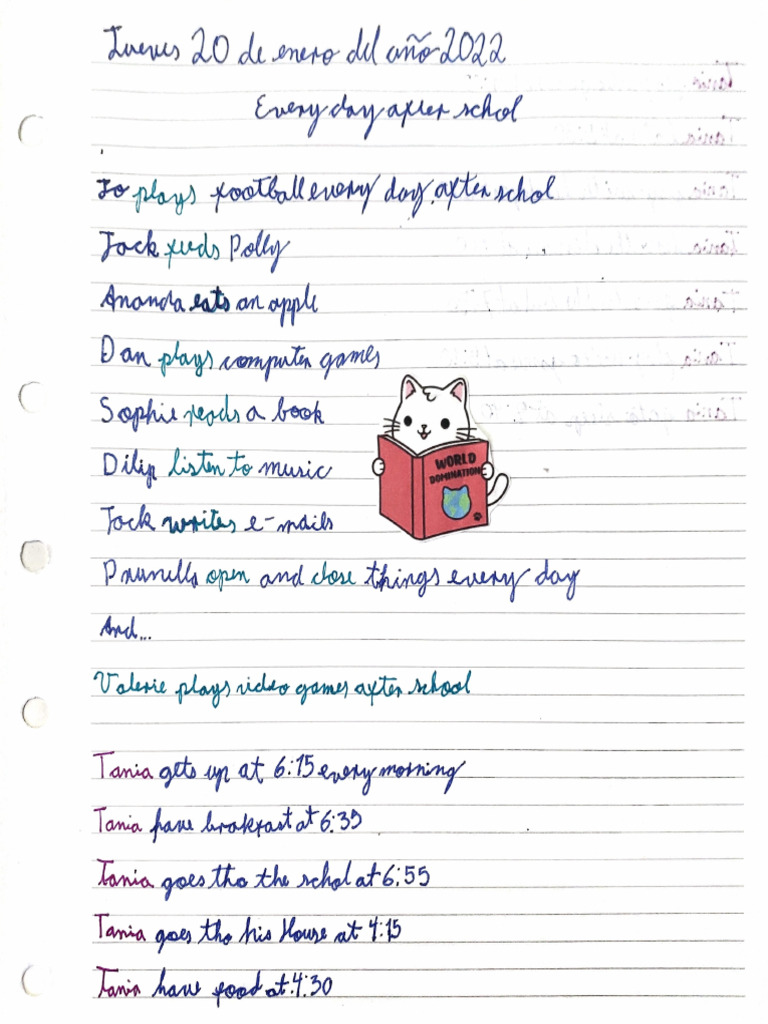 Jueves 20 de enero del año 2022
Every day after school
Jo plays football every day after schol
Jack feeds Polly
Ananda eats an apple
Dan plays computer games
Sophie reads a book
WORLD
DOMINATION
Dilip listen to music
Jack writes e-mails
Prunella open and close things every day
And...
Valerie plays video games after school
Tania gets up at 6:15 every morning
Tania have brakfast at 6:35
Tania goes tho the schol at 6:55
Tania goes tho his House at 4:15
Tania have food at 4:30